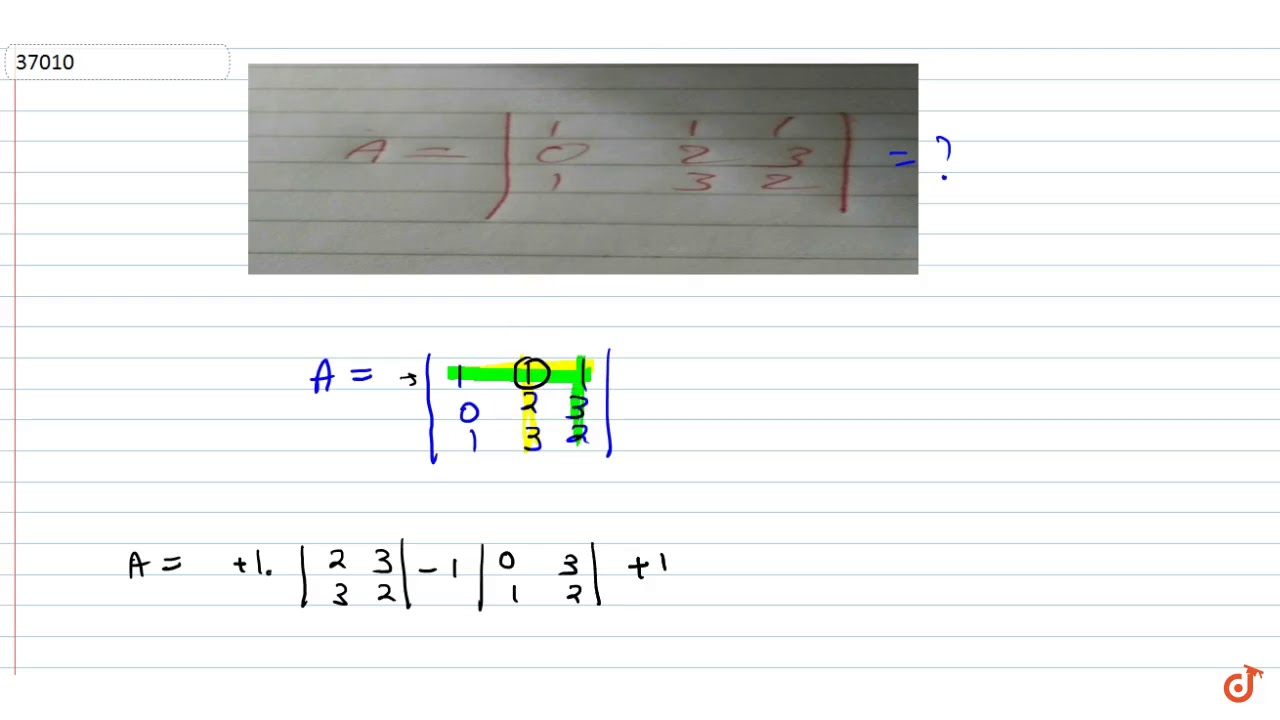 37010
A = | 1 1 1 |
| 0 2 3 | = ?
| 1 3 2 |
A = → | 1 1 1 |
| 0 2 3 |
| 1 3 2 |
A = +1. | 2 3 | - 1 | 0 3 | + 1
| 3 2 | | 1 2 |